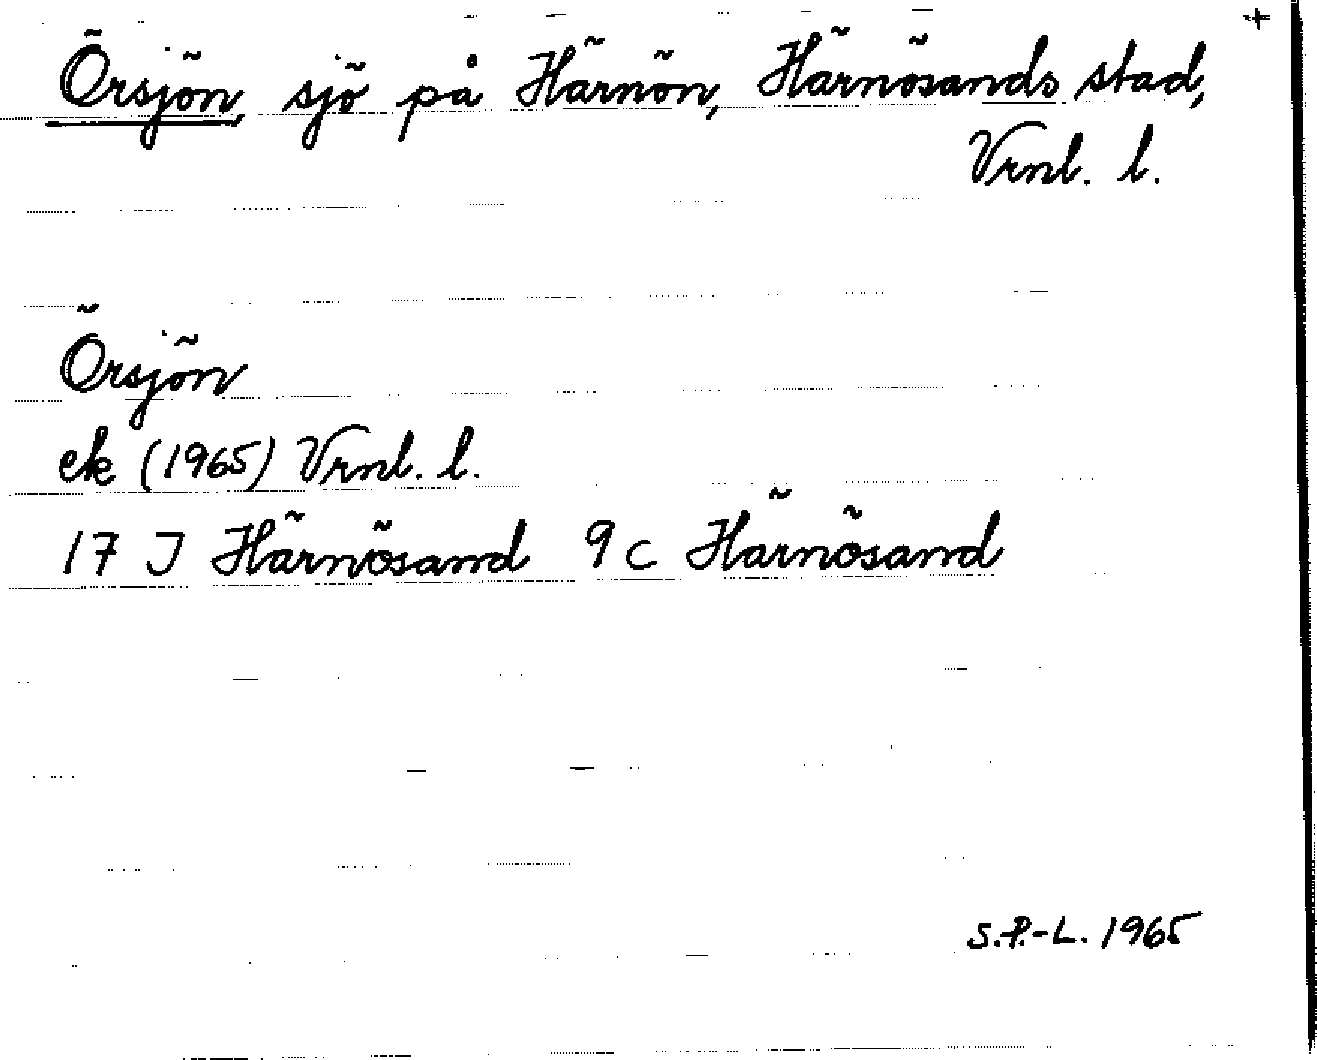 +
Örsjön, sjö på Härnön, Härnösands stad,
Vrnl. l.
Örsjön
ek (1965) Vrnl. l.
17 J Härnösand 9 c Härnösand
S.P.-L. 1965